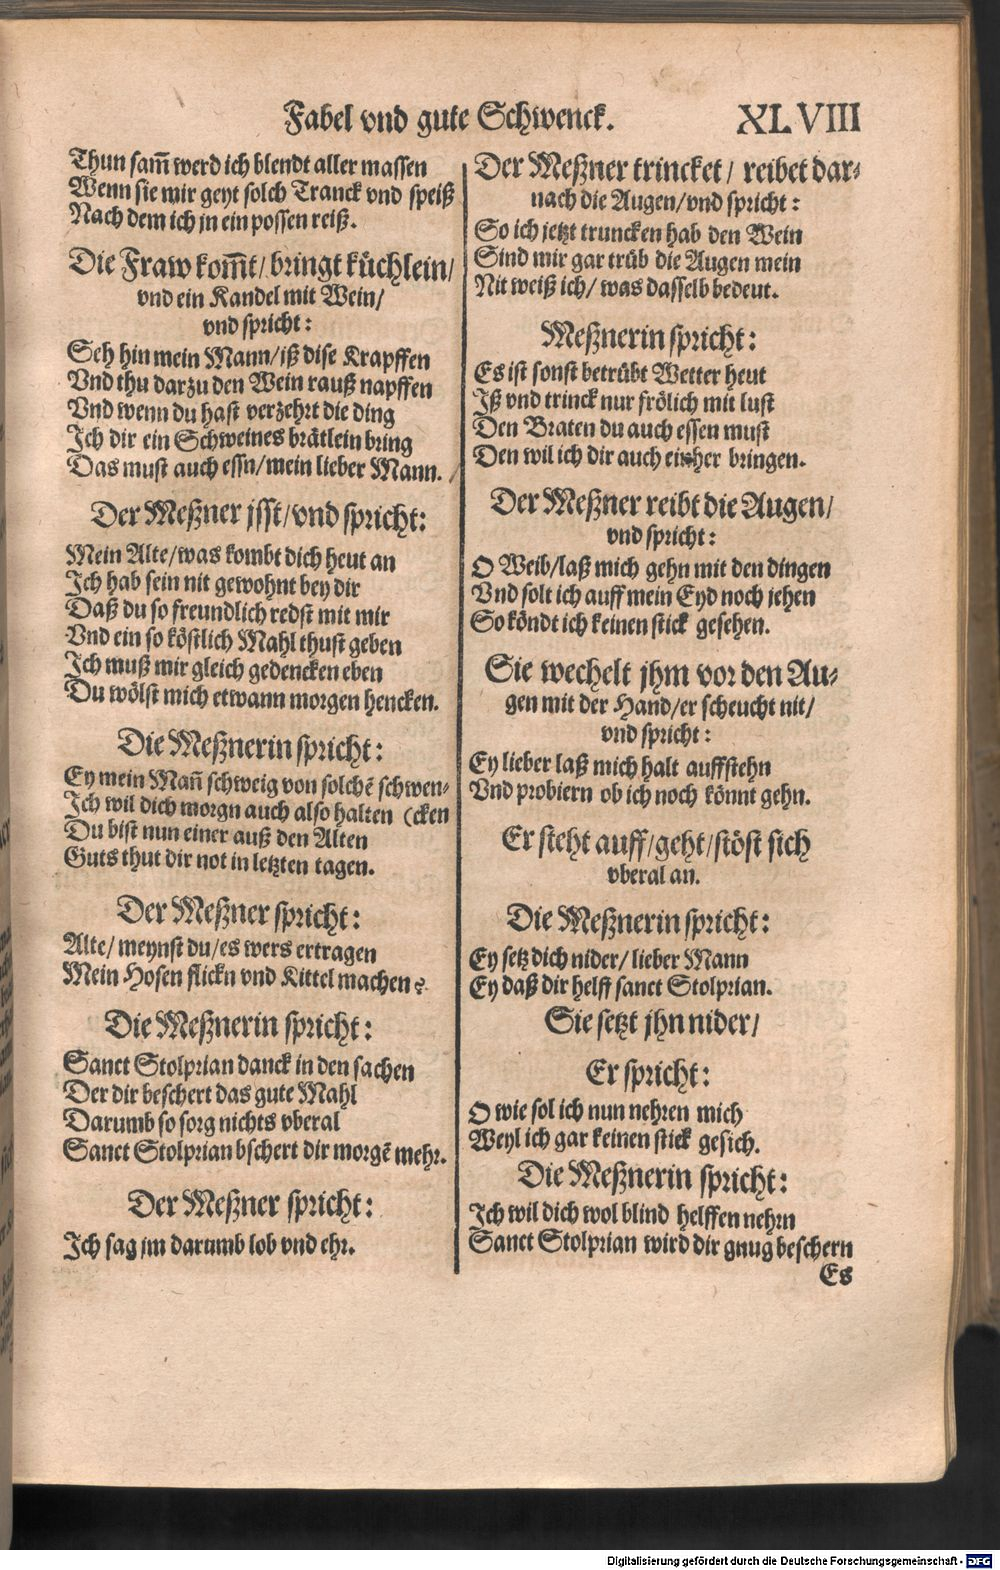 Fabel vnd gute Schwenck. XLVIII
Thun sam̃ werd ich blendt aller massen
Wenn sie mir geyt solch Tranck vnd speiß
Nach dem ich jn ein possen reiß.
Die Fraw kom̃t/ bringt küchlein/
vnd ein Kandel mit Wein/
vnd spricht:
Seh hin mein Mann/iß dise Krapffen
Vnd thu darzu den Wein rauß napffen
Vnd wenn du hast verzehrt die ding
Ich dir ein Schweines brätlein bring
Das must auch essn/mein lieber Mann.
Der Meßner jsst/vnd spricht:
Mein Alte/was kombt dich heut an
Ich hab sein nit gewohnt bey dir
Daß du so freundlich redst mit mir
Vnd ein so köstlich Mahl thust geben
Ich muß mir gleich gedencken eben
Du wölst mich etwann morgen hencken.
Die Meßnerin spricht:
Ey mein Mañ schweig von solchẽ schwen-
Ich wil dich morgn auch also halten (cken
Du bist nun einer auß den Alten
Guts thut dir not in letzten tagen.
Der Meßner spricht:
Alte/ meynst du/es wers ertragen
Mein Hosen flickn vnd Kittel machen?
Die Meßnerin spricht:
Sanct Stolprian danck in den sachen
Der dir beschert das gute Mahl
Darumb so sorg nichts vberal
Sanct Stolprian bschert dir morgẽ mehr.
Der Meßner spricht:
Ich sag jm darumb lob vnd ehr.
Der Meßner trincket/ reibet dar-
nach die Augen/vnd spricht:
So ich jetzt truncken hab den Wein
Sind mir gar trüb die Augen mein
Nit weiß ich/ was dasselb bedeut.
Meßnerin spricht:
Es ist sonst betrübt Wetter heut
Iß vnd trinck nur frölich mit lust
Den Braten du auch essen must
Den wil ich dir auch einher bringen.
Der Meßner reibt die Augen/
vnd spricht:
O Weib/laß mich gehn mit den dingen
Vnd solt ich auff mein Eyd noch jehen
So köndt ich keinen stick gesehen.
Sie wechelt jhm vor den Au-
gen mit der Hand/er scheucht nit/
vnd spricht:
Ey lieber laß mich halt auffstehn
Vnd probiern ob ich noch könnt gehn.
Er steht auff/geht/stöst sich
vberal an.
Die Meßnerin spricht:
Ey setz dich nider/ lieber Mann
Ey daß dir helff sanct Stolprian.
Sie setzt jhn nider/
Er spricht:
O wie sol ich nun nehren mich
Weyl ich gar keinen stick gesich.
Die Meßnerin spricht:
Ich wil dich wol blind helffen nehrn
Sanct Stolprian wird dir gnug beschern
Es
Digitalisierung gefördert durch die Deutsche Forschungsgemeinschaft - DFG